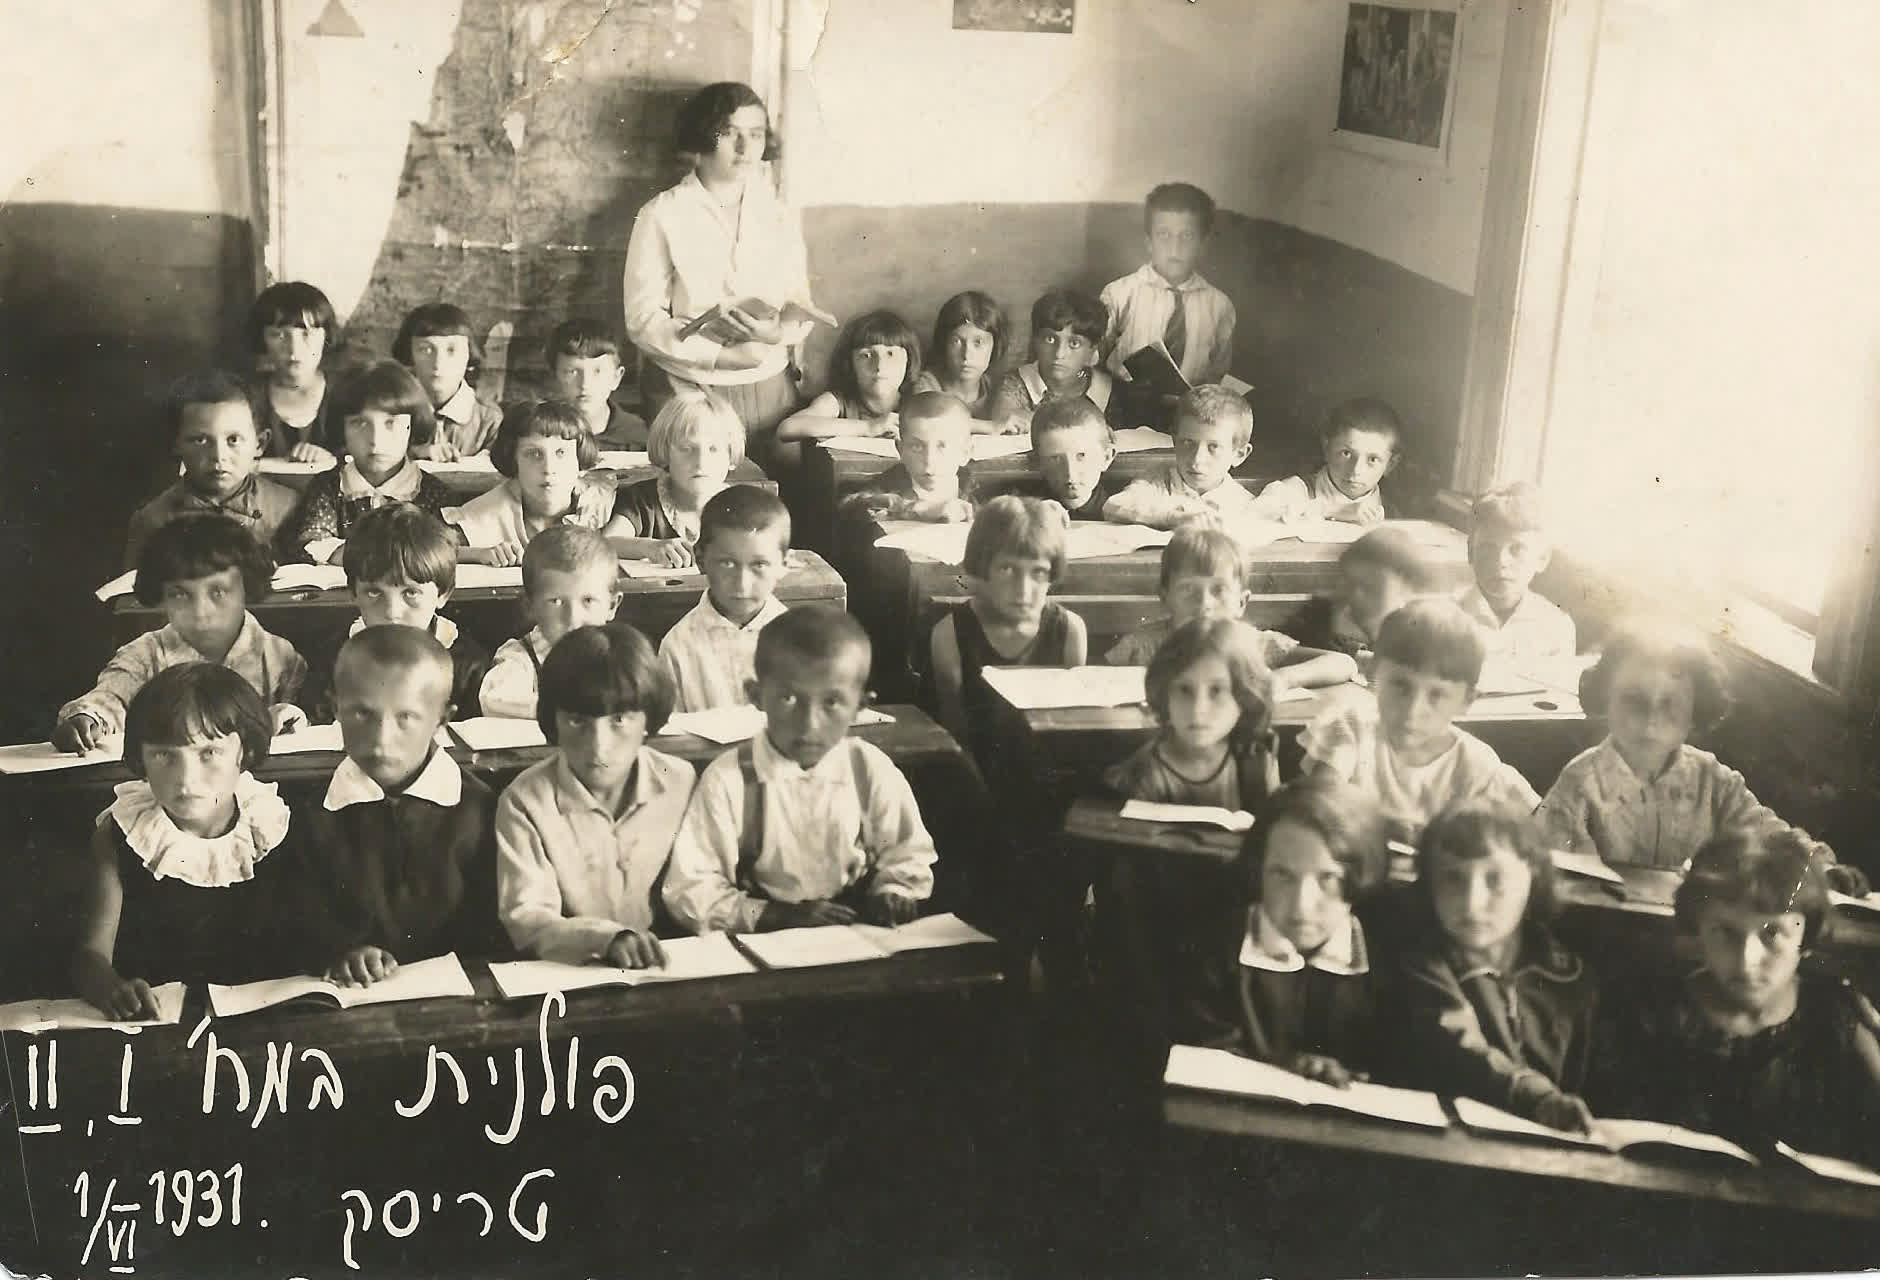 פולנית במח' I, II
טריסק 1/VI 1931.